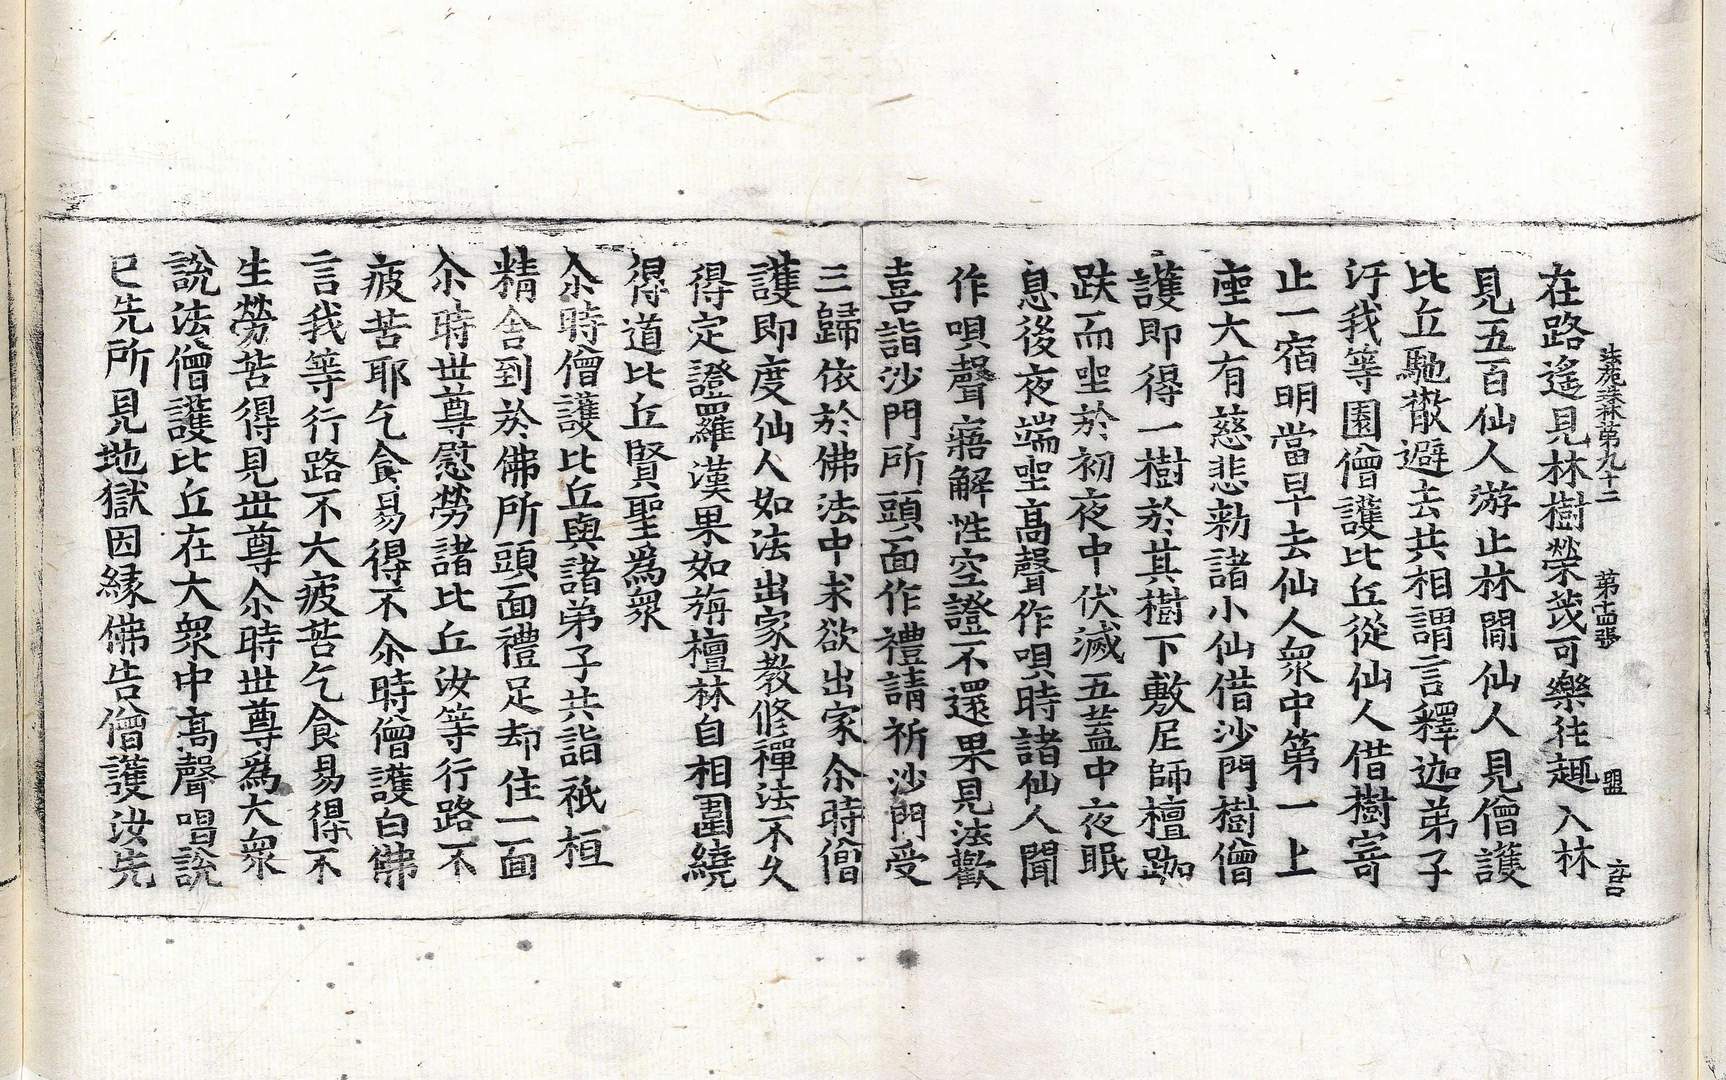 法苑珠林第九十二　第十四張　盟
在路遙見林樹榮茂可樂往趣入林
見五百仙人游止林間仙人見僧護
比丘馳散避去共相謂言釋迦弟子
汙我等園僧護比丘從仙人借樹寄
止一宿明當早去仙人衆中第一上
座大有慈悲勑諸小仙借沙門樹僧
護即得一樹於其樹下敷尼師檀跏
趺而坐於初夜中伏滅五蓋中夜眠
息後夜端坐高聲作唄時諸仙人聞
作唄聲寤解性空證不還果見法歡
喜詣沙門所頭面作禮請祈沙門受
三歸依於佛法中求欲出家尒時僧
護即度仙人如法出家教修禪法不久
得定證羅漢果如旃檀林自相圍繞
得道比丘賢聖爲衆
尒時僧護比丘與諸弟子共詣祇桓
精舍到於佛所頭面禮足却住一面
尒時世尊慰勞諸比丘汝等行路不
疲苦耶乞食易得不尒時僧護白佛
言我等行路不大疲苦乞食易得不
生勞苦得見世尊尒時世尊爲大衆
說法僧護比丘在大衆中高聲唱說
已先所見地獄因緣佛告僧護汝先